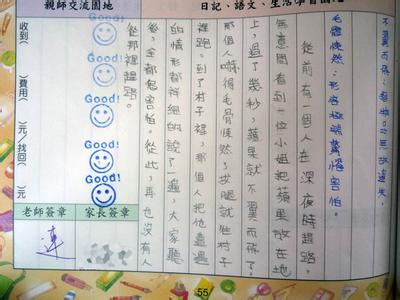 日記、語文、生活學習園地
不翼而飛:忽然遺失。
毛骨悚然:形容極端驚惶害怕。
從前有一個人在深夜時趕路。
無意間看到一位小姐把蘋果放在地
上,過了幾秒,蘋果就不翼而飛了!
那個人嚇得毛骨悚然,拔腿就往村子
裡跑。到了村子裡,那個人把他遭遇
的情形都詳細的說了一遍,大家聽
後,全都很害怕。從此,再也沒有人
從那裡趕路。
親師交流園地
Good!
Good!
Good!
Good!
收到( )費用( )元/找回( )元
老師簽章
家長簽章
連
55